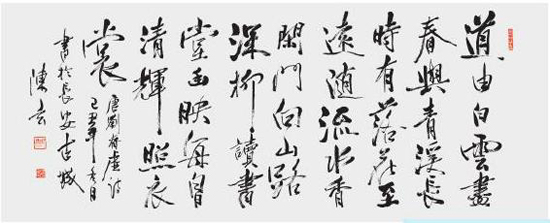 道由白雲盡
春與青溪長
時有落花至
遠随流水香
閑門向山路
深柳讀書
堂幽映每白日
清輝照衣
裳
唐劉眘虛詩
己丑年
書於長安古城
陳